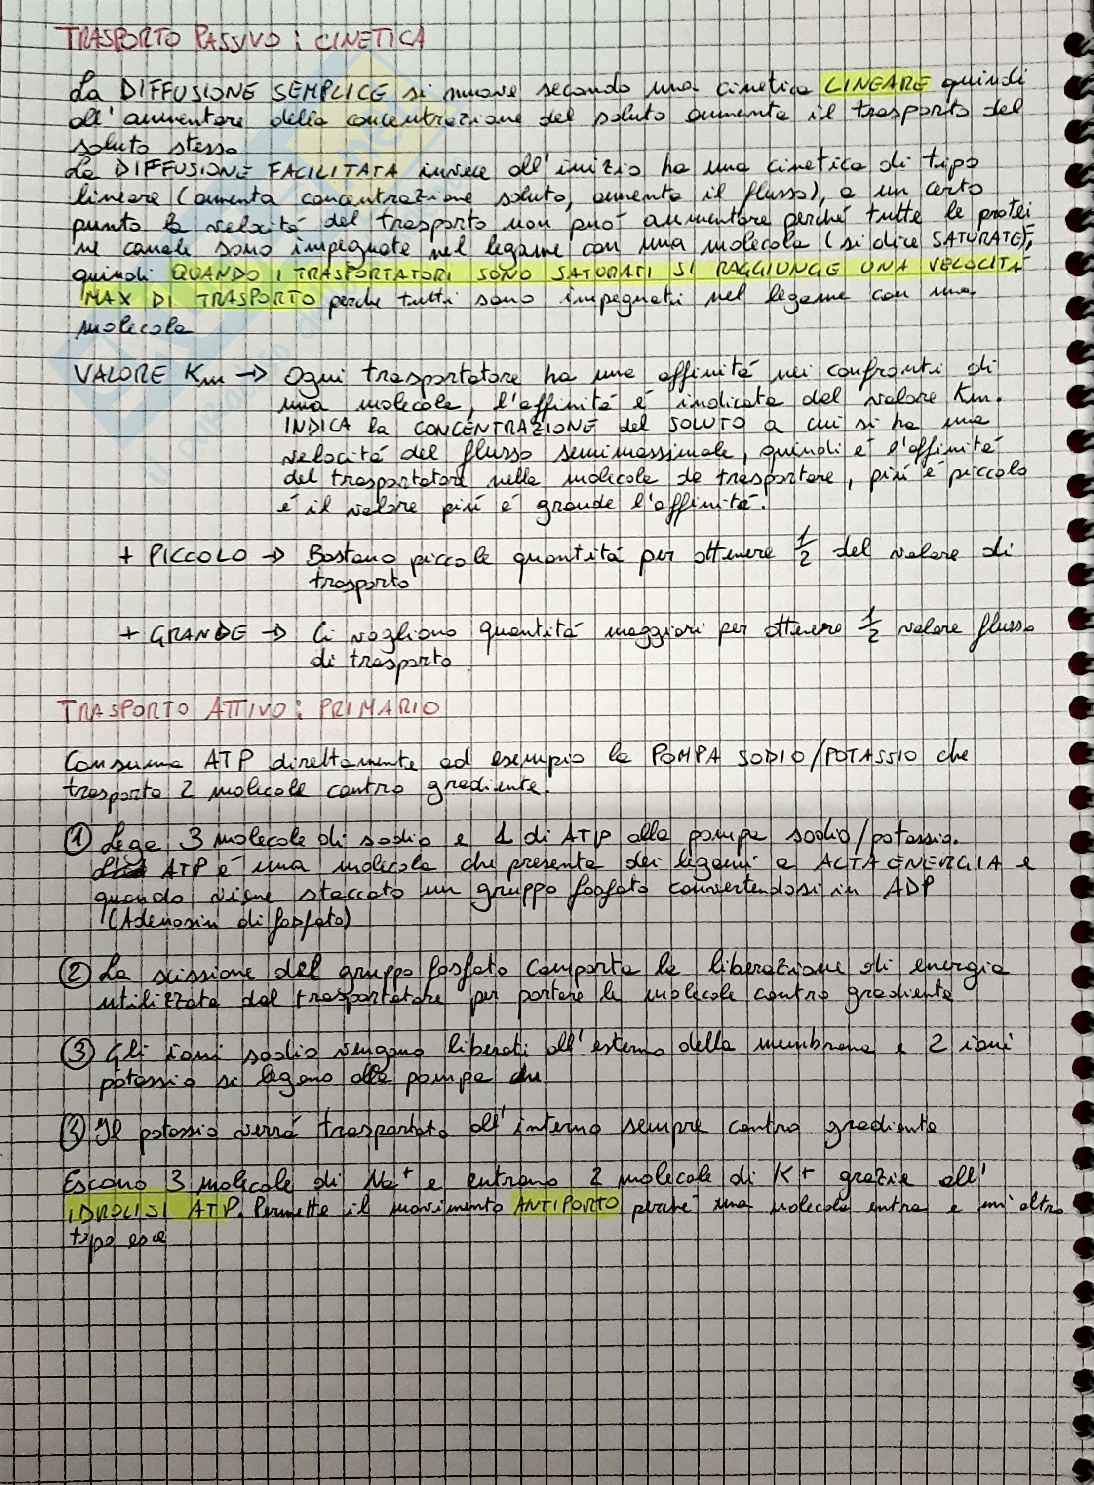 TRASPORTO PASSIVO : CINETICA
La DIFFUSIONE SEMPLICE si muove secondo una cinetica LINEARE quindi
all'aumentare della concentrazione del soluto aumenta il trasporto del
soluto stesso
La DIFFUSIONE FACILITATA invece all'inizio ha una cinetica di tipo
lineare (aumenta concentrazione soluto, aumenta il flusso), a un certo
punto la velocità del trasporto non può aumentare perché tutte le protei
ne canale sono impegnate nel legame con una molecola (si dice SATURATE),
quindi QUANDO I TRASPORTATORI SONO SATURATI SI RAGGIUNGE UNA VELOCITÀ
MAX DI TRASPORTO perché tutti sono impegnati nel legame con una
molecola
VALORE Km → Ogni trasportatore ha una affinità nei confronti di
una molecola, l'affinità è indicata dal valore Km.
INDICA la CONCENTRAZIONE del SOLUTO a cui si ha una
velocità del flusso semimassimale, quindi è l'affinità
del trasportatore nella molecola da trasportare, più è piccolo
è il valore più è grande l'affinità.
+ PICCOLO → Bastano piccole quantità per ottenere 1/2 del valore di
trasporto
+ GRANDE → Ci vogliono quantità maggiori per ottenere 1/2 valore flusso
di trasporto
TRASPORTO ATTIVO : PRIMARIO
Consuma ATP direttamente ad esempio la POMPA SODIO/POTASSIO che
trasporta 2 molecole contro gradiente.
① Lega 3 molecole di sodio e 1 di ATP alla pompa sodio/potassio.
ATP è una molecola che presenta dei legami a ALTA ENERGIA e
quando viene staccato un gruppo fosfato convertendosi in ADP
(Adenosin difosfato)
② La scissione del gruppo fosfato comporta la liberazione di energia
utilizzata dal trasportatore per portare le molecole contro gradiente
③ Gli ioni sodio vengono liberati all'esterno della membrana e 2 ioni
potassio si legano alla pompa
④ Il potassio verrà trasportato all'interno sempre contro gradiente
Escono 3 molecole di Na+ e entrano 2 molecole di K+ grazie all'
IDROLISI ATP. Permette il movimento ANTIPORTO perché una molecola entra e un'altro
tipo esce